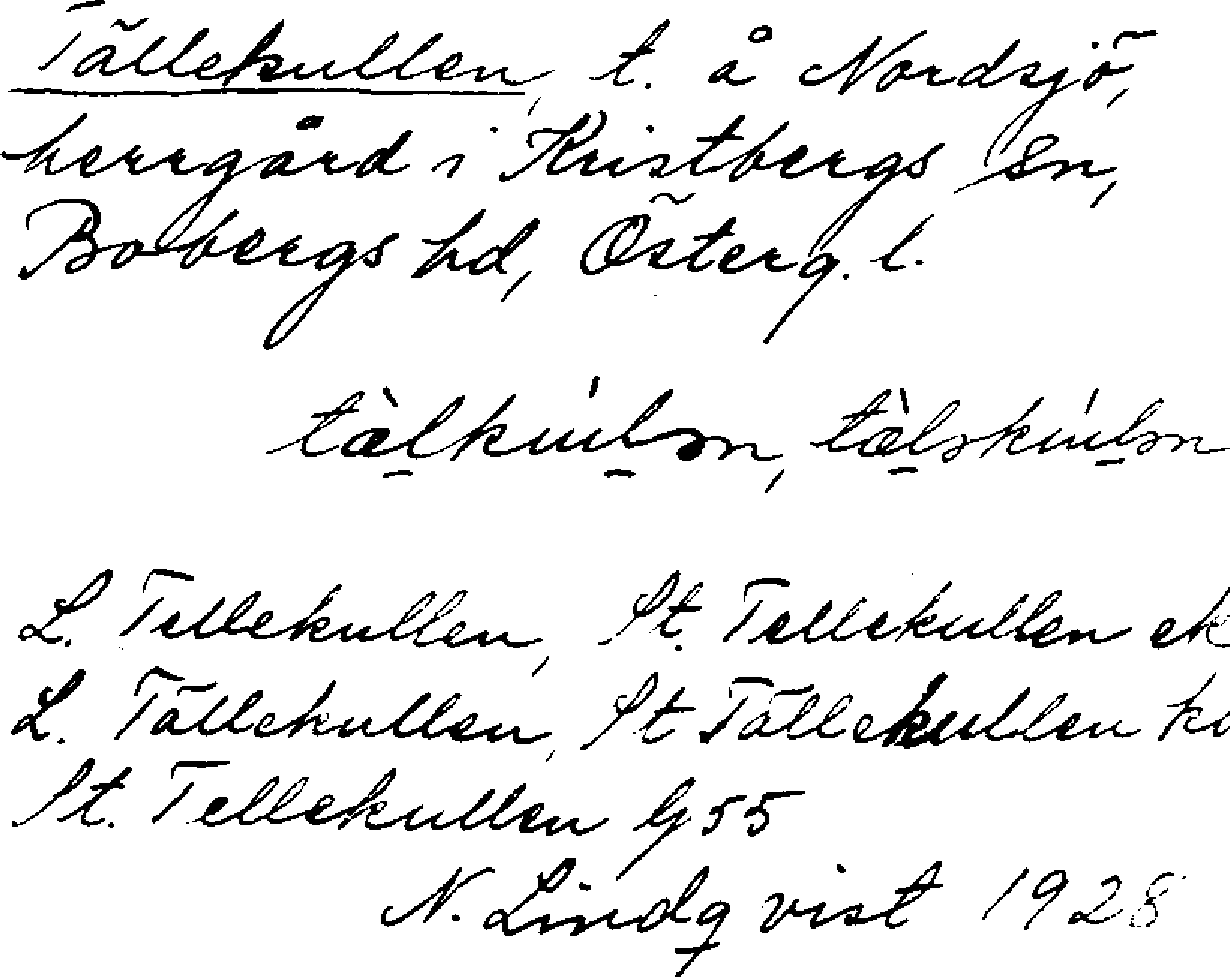 Tällekullen, t. å Nordsjö,
herrgård i Kristbergs sn,
Bobergs hd, Österg. l.
tæ̀lkúlən, tæ̀ləkúlən
L. Tellekullen, St. Tellekullen ek
L. Tällekullen, St Tällekullen
St. Tellekullen G 55
N. Lindqvist 1928